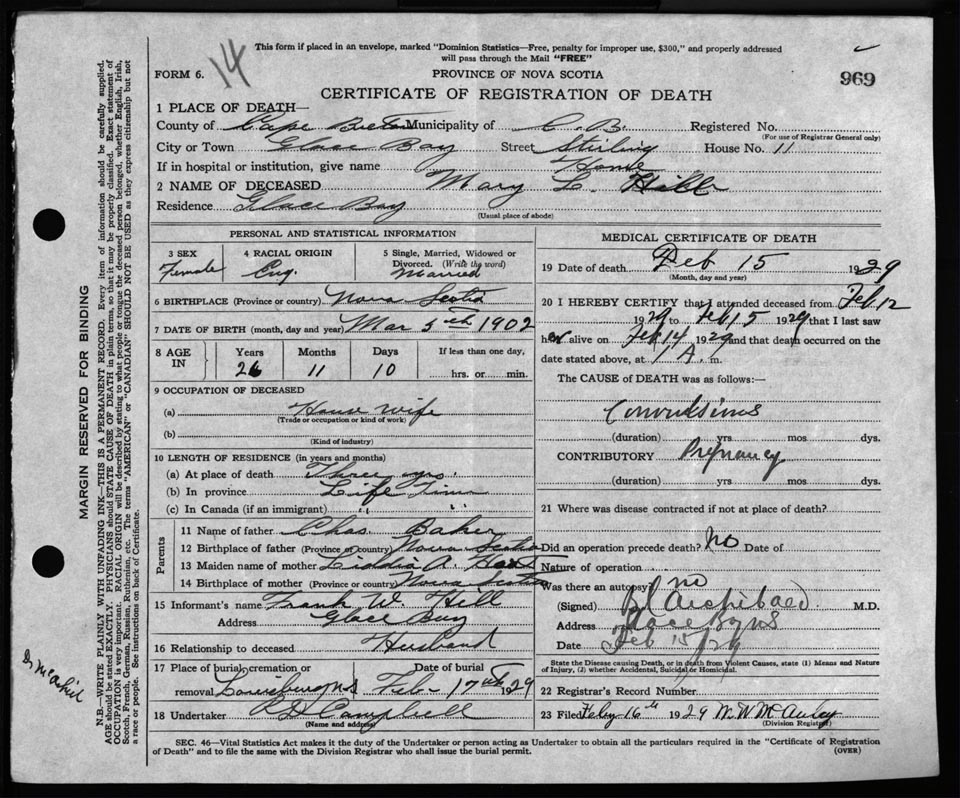 This form if placed in an envelope, marked "Dominion Statistics—Free, penalty for improper use, $300," and properly addressed
will pass through the Mail "FREE"
14
FORM 6.
PROVINCE OF NOVA SCOTIA
969
CERTIFICATE OF REGISTRATION OF DEATH
1 PLACE OF DEATH—
County of Cape Breton Municipality of C. B. Registered No.
(For use of Registrar General only)
City or Town Glace Bay Street Stirling House No. 11
If in hospital or institution, give name Home
2 NAME OF DECEASED Mary L. Hill
Residence Glace Bay
(Usual place of abode)
PERSONAL AND STATISTICAL INFORMATION
3 SEX Female
4 RACIAL ORIGIN Eng.
5 Single, Married, Widowed or Divorced. (Write the word) Married
6 BIRTHPLACE (Province or country) Nova Scotia
7 DATE OF BIRTH (month, day and year) Mar 5th 1902
8 AGE IN
Years Months Days If less than one day,
26 11 10 hrs. or min.
9 OCCUPATION OF DECEASED
(a) House wife
(Trade or occupation or kind of work)
(b)
(Kind of industry)
10 LENGTH OF RESIDENCE (in years and months)
(a) At place of death Three yrs.
(b) In province Life Time
(c) In Canada (if an immigrant) " "
Parents
11 Name of father Chas. Baker
12 Birthplace of father (Province or country) Nova Scotia
13 Maiden name of mother A.
14 Birthplace of mother (Province or country) Nova Scotia
15 Informant's name Frank W. Hill
Address Glace Bay
16 Relationship to deceased Husband
17 Place of burial, cremation or Date of burial
removal Louisburg N.S Feb. 17th 1929
18 Undertaker Campbell
(Name and address)
MEDICAL CERTIFICATE OF DEATH
19 Date of death Feb 15 1929
(Month, day and year)
20 I HEREBY CERTIFY that I attended deceased from Feb 12
1929 to Feb 15 1929 that I last saw
her alive on Feb 14 1929 and that death occurred on the
date stated above, at 1 A. m.
The CAUSE of DEATH was as follows:—
Convulsions
(duration) yrs mos dys.
CONTRIBUTORY Pregnancy
(duration) yrs mos dys.
21 Where was disease contracted if not at place of death?
Did an operation precede death? No Date of
Nature of operation
Was there an autopsy no
(Signed) Archibald M.D.
Address Glace Bay NS
Date Feb 15/29
State the Disease causing Death, or in death from Violent Causes, state (1) Means and Nature
of Injury, (2) whether Accidental, Suicidal or Homicidal.
22 Registrar's Record Number
23 Filed Feby 16th 1929 McAuley
(Division Registrar)
SEC. 46—Vital Statistics Act makes it the duty of the Undertaker or person acting as Undertaker to obtain all the particulars required in the "Certificate of Registration
of Death" and to file the same with the Division Registrar who shall issue the burial permit. (OVER)
MARGIN RESERVED FOR BINDING
N.B.—WRITE PLAINLY WITH UNFADING INK—THIS IS A PERMANENT RECORD. Every item of information should be carefully supplied.
AGE should be stated EXACTLY. PHYSICIANS should STATE CAUSE OF DEATH in plain terms, so that it may be properly classified. Exact statement of
OCCUPATION is very important. RACIAL ORIGIN will be described by stating to what people or tongue the deceased person belonged, whether English, Irish,
Scotch, French, German, Russian, Ruthenian, etc. The terms "AMERICAN" or "CANADIAN" SHOULD NOT BE USED as they express citizenship but not
a race or people. See instructions on back of Certificate.